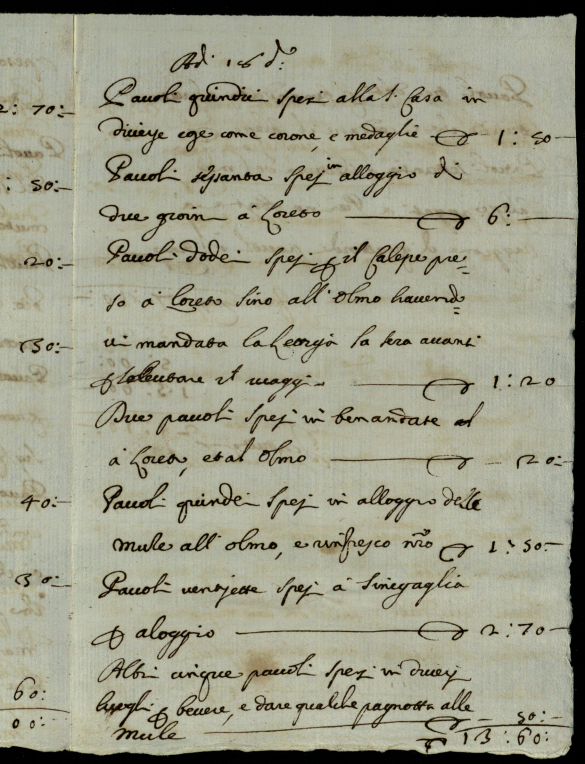 Adi 16 d.°
Pavoli quindici spesi alla S. Casa in
diverse cose come corone, e medaglie 1 : 50
Pavoli sessanta spesi in alloggio di
due giorni à Loreto 6 :
Pavoli dodeci spesi p il Calepe pre=
so à Loreto sino all' Olmo havend=
vi mandata la sera avanti
p il viaggio 1 : 20
Due pavoli spesi in benandate
à Loreto, et al Olmo 20 :
Pavoli quindeci spesi in alloggio delle
mule all' olmo, e rinfresco nro 1 : 50 :
Pavoli ventisette spesi à Sinegaglia
p aloggio 2 : 70
Altri cinque pavoli spesi in diversi
luoghi p bevere, e dare qualche pagnotta alle
mule 50 :
13 : 60 :
2 : 70 :
: 50 :
20 :
30 :
40 :
30 :
60 :
00 :